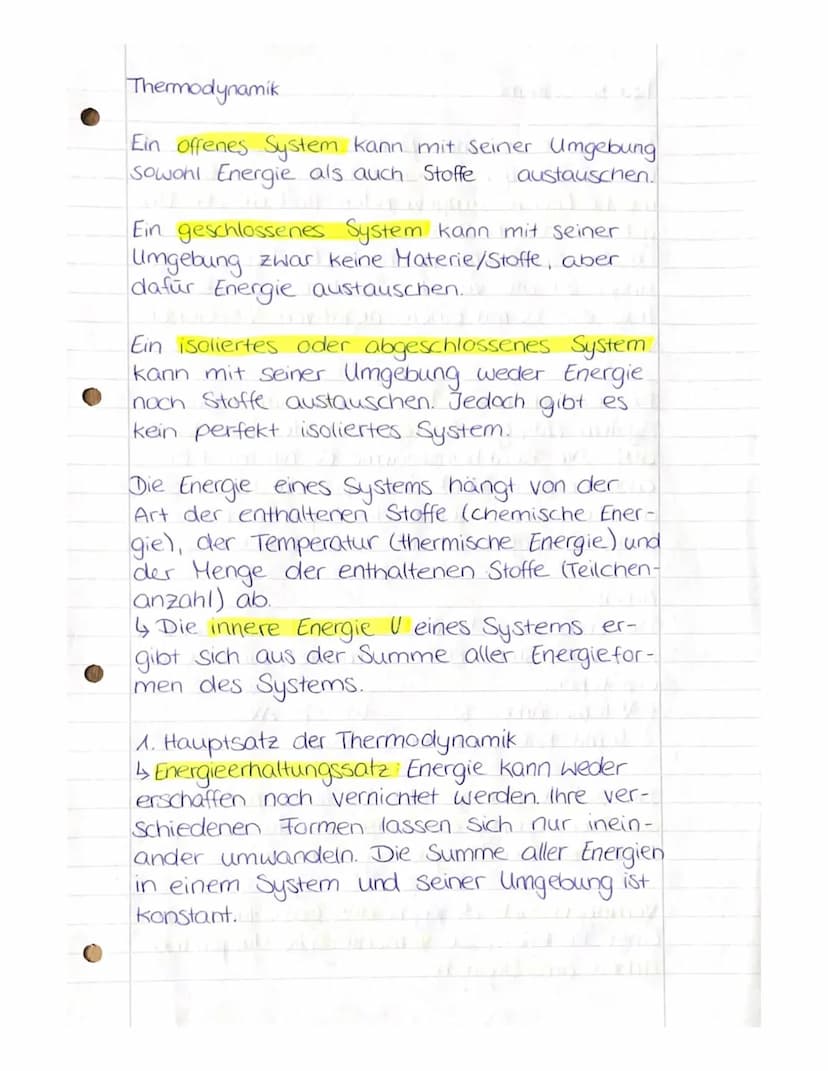 Thermodynamik
Ein offenes System kann mit seiner Umgebung
sowohl Energie als auch Stoffe austauschen.
Ein geschlossenes System kann mit seiner
Umgebung zwar keine Materie/Stoffe, aber
dafür Energie austauschen.
Ein isoliertes oder abgeschlossenes System
kann mit seiner Umgebung weder Energie
noch Stoffe austauschen. Jedoch gibt es
kein perfekt isoliertes System.
Die Energie eines Systems hängt von der
Art der enthaltenen Stoffe (chemische Ener-
gie), der Temperatur (thermische Energie) und
der Menge der enthaltenen Stoffe (Teilchen-
anzahl) ab.
↳ Die innere Energie U eines Systems er-
gibt sich aus der Summe aller Energiefor-
men des Systems.
1. Hauptsatz der Thermodynamik
↳ Energieerhaltungssatz: Energie kann weder
erschaffen noch vernichtet werden. Ihre ver-
schiedenen Formen lassen sich nur inein-
ander umwandeln. Die Summe aller Energien
in einem System und seiner Umgebung ist
konstant.